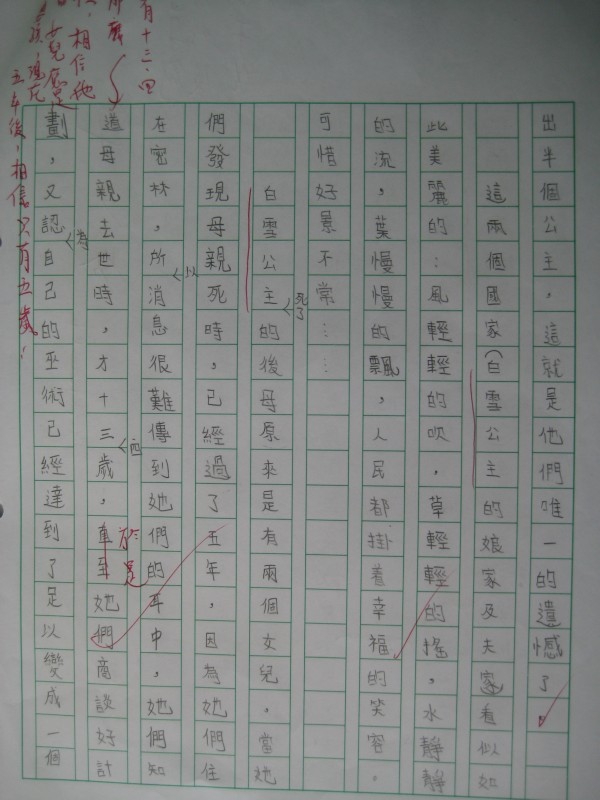 出半個公主，這就是他們唯一的遺憾了。
這兩個國家(白雪公主的娘家及夫家看似如
此美麗的：風輕輕的吹，草輕輕的搖，水靜靜
的流，葉慢慢的飄，人民都掛著幸福的笑容。
可惜好景不常……
白雪公主的後母原來是有兩個女兒，當她
死了
們發現母親死時，已經過了五年，因為她們住
在密林，所消息很難傳到她們的耳中，她們知
以
道母親去世時，才十三歲，直至她們商談好計
四
於是
劃，又認自己的巫術已經達到了足以變成一個
為
月十三、四
相信她
女兒應是
五年後，相信只有五歲！